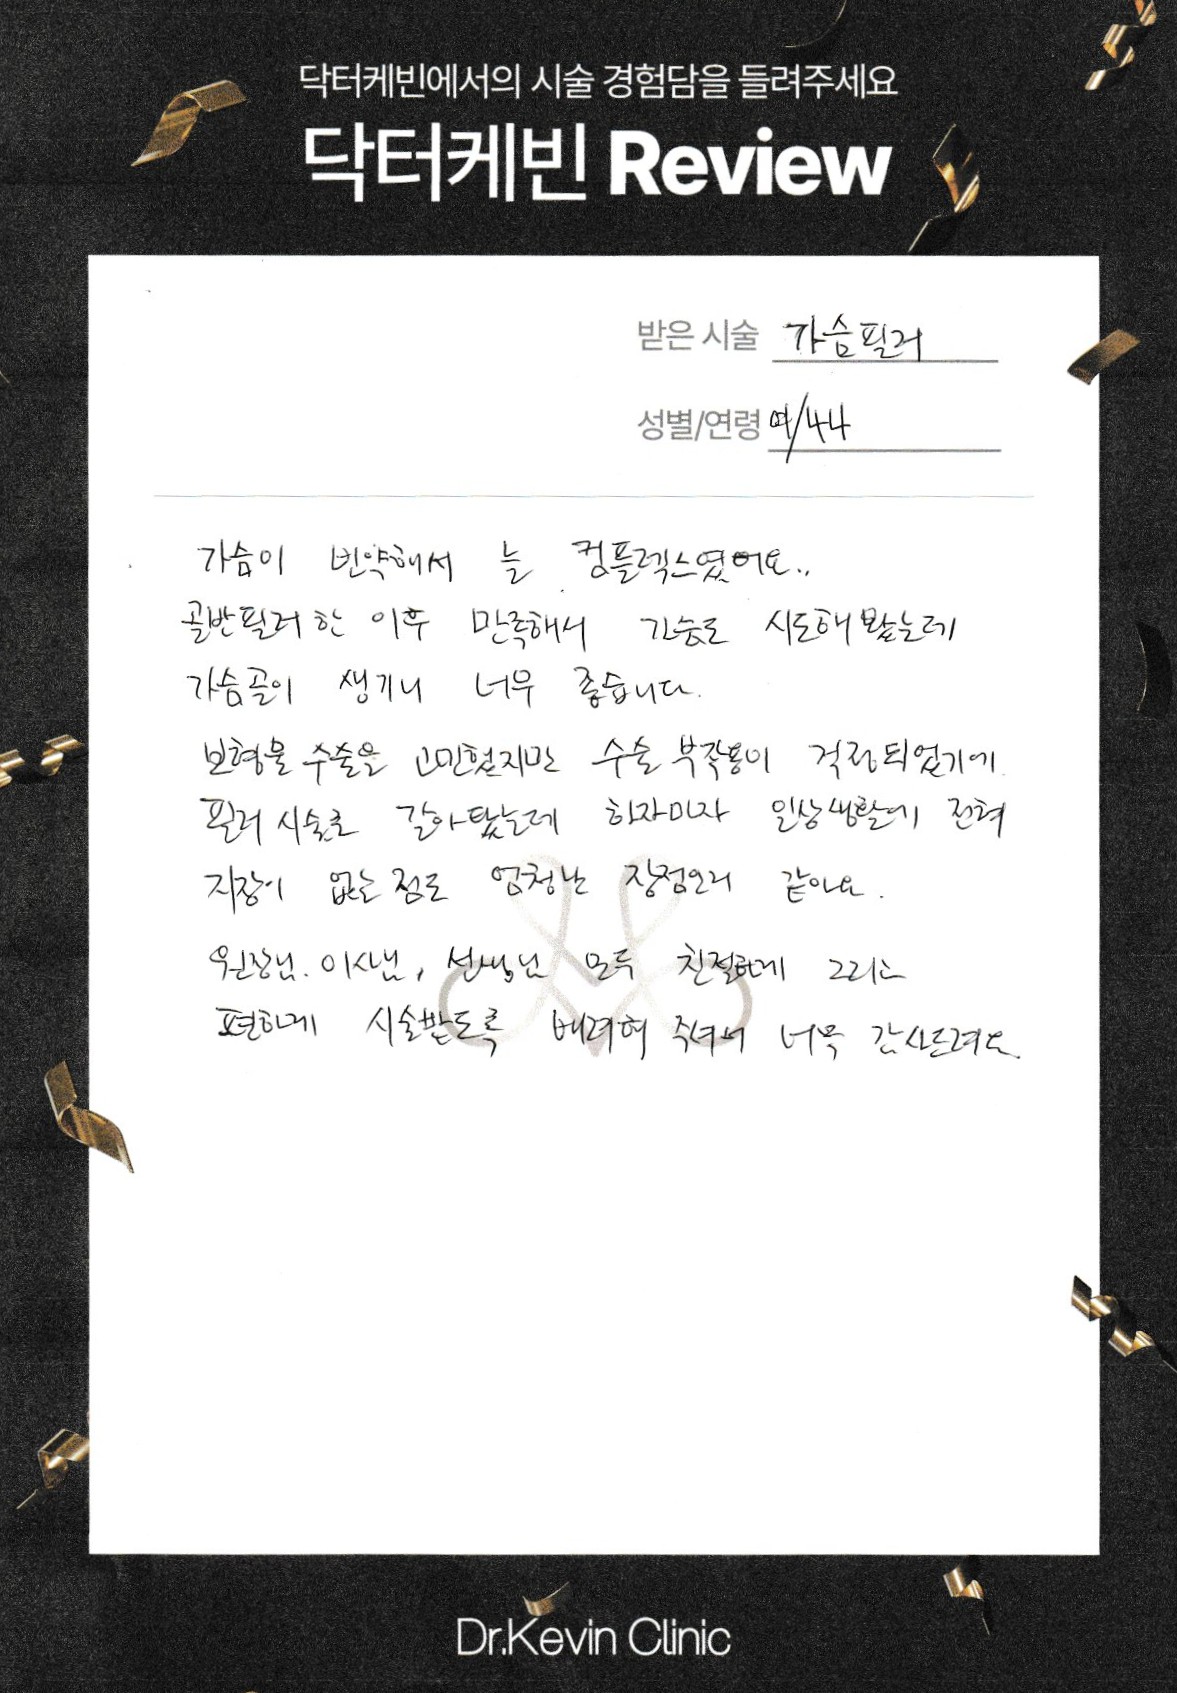 닥터케빈에서의 시술 경험담을 들려주세요
닥터케빈 Review
받은 시술 가슴필러
성별/연령 여/44
가슴이 빈약해서 늘 컴플렉스였어요..
골반필러 한 이후 만족해서 가슴도 시도해봤는데
가슴골이 생기니 너무 좋습니다.
보형물 수술을 고민했지만 수술 부작용이 걱정되었기에
필러 시술로 갈아탔는데 하자마자 일상생활에 전혀
지장이 없는 점도 엄청난 장점인거 같아요.
원장님. 이사님, 선생님 모두 친절하게 그리고
편하게 시술받도록 배려해 주셔서 너무 감사드려요.
Dr.Kevin Clinic